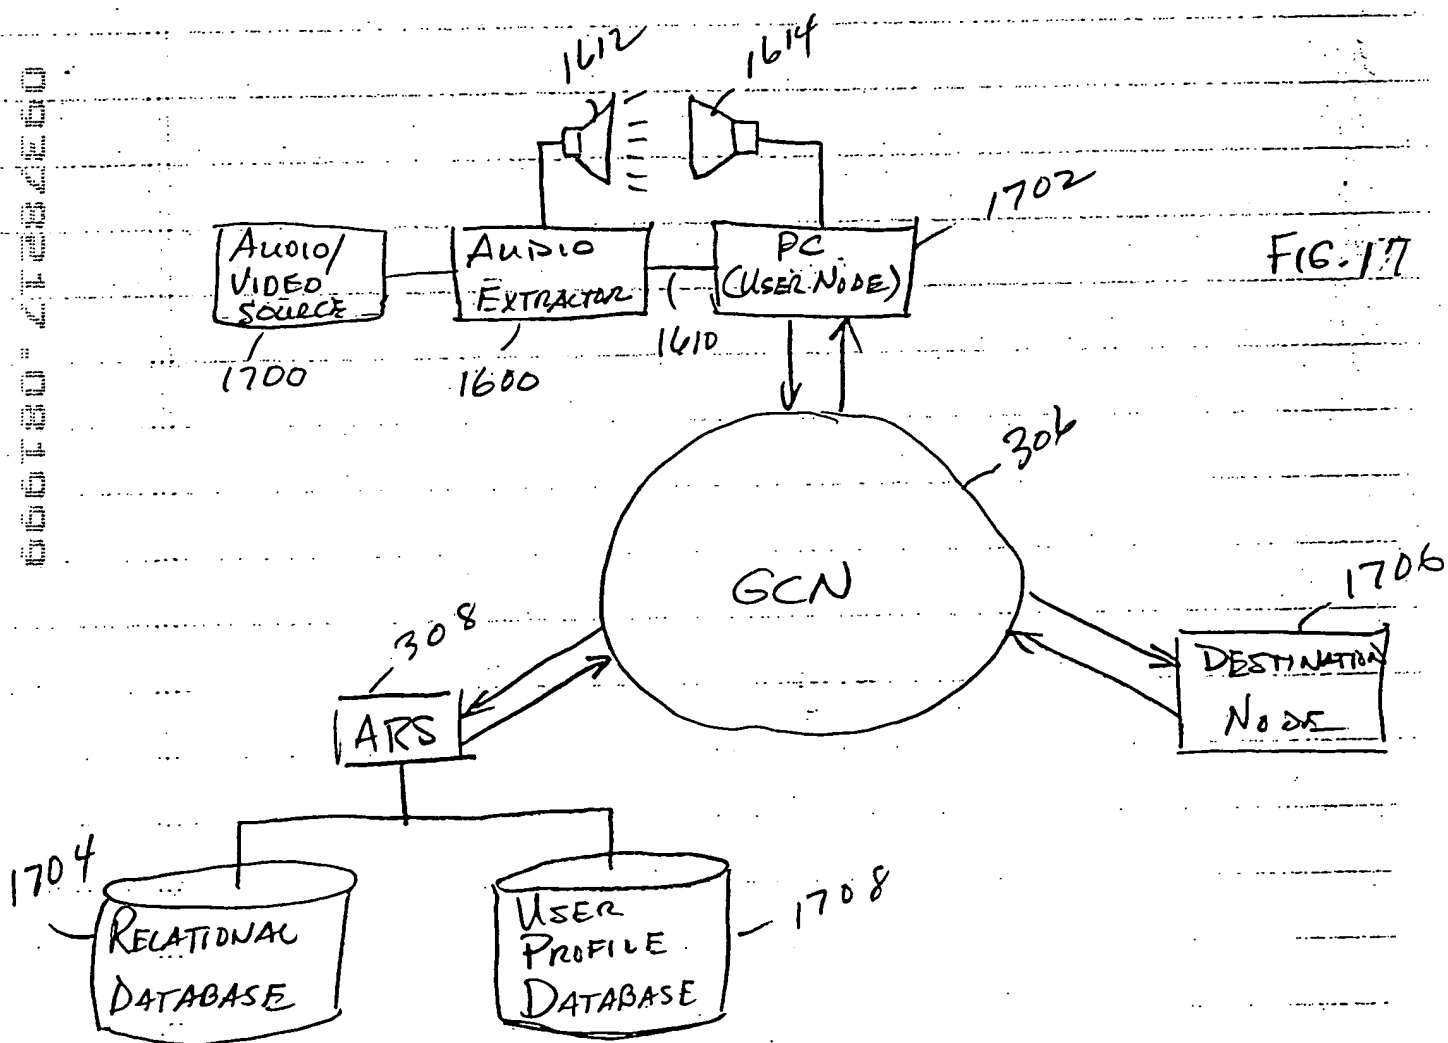 1612
1614
1702
AUDIO/
VIDEO
SOURCE
AUDIO
EXTRACTOR
PC
(USER NODE)
FIG. 17
1700
1600
1610
306
GCN
1706
308
DESTINATION
NODE
ARS
1704
1708
RELATIONAL
DATABASE
USER
PROFILE
DATABASE
09378217.081999